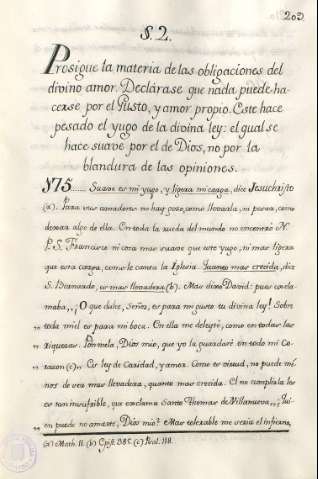 203
§. 2.
Prosigue la materia de las obligaciones del
divino amor. Declárase que nada puede ha-
cerse por el Gusto, y amor propio. Este hace
pesado el yugo de la divina ley: el qual se
hace suave por el de Dios, no por la
blandura de las opiniones.
875..... Suave es mi yugo, y ligera mi carga, dice Jesuchristo
(a). Para mas consuelo no hay peso, como llevarla, ni pena, como
desear algo de ella. En toda la rueda del mundo no encontró N.
P. S. Francisco ni cosa mas suave que este yugo, ni mas ligera
que esta carga, como le canta la Iglesia. Quanto mas crecida, dice
S. Bernardo, es mas llevadera (b). Mas dixo David: pues excla-
maba,, ¡O que dulce, Señor, es para mi gusto tu divina ley! Sobre
,, toda miel es para mi boca. En ella me deleyté, como en todas las
,, riquezas. Ponmela, Dios mio, que yo la guardaré en todo mi Co-
,, razon (c)., Es ley de Caridad, y amor. Como es virtud, no puede mé-
nos de ser mas llevadera, quanto mas crecida. El no cumplirla
es tan insufrible, que exclama Santo Thomas de Villanueva,, ¡Qui-
,, en puede no amarte, Dios mio? Mas tolerable me seria el infierno,
(a) Math. 11. (b) Epist. 385. (c) Psal. 118.